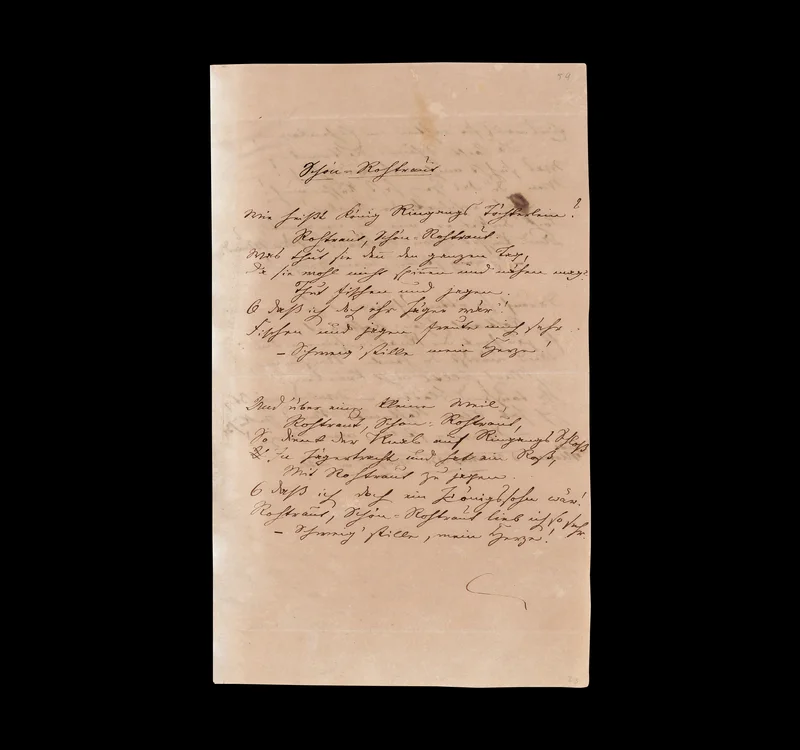 54
Schön-Rohtraut
Wie heißt König Ringangs Töchterlein?
Rohtraut, Schön-Rohtraut
Was thut sie denn den ganzen Tag,
Da sie wohl nicht spinnen und nähen mag?
Thut fischen und jagen.
O daß ich doch ihr Jäger wär'!
Fischen und jagen freute mich sehr.
– Schweig' stille mein Herze!
Und über eine kleine Weil,
Rohtraut, Schön-Rohtraut,
So dient der Knab auf Ringangs Schloß
In Jägertracht und hat ein Roß,
Mit Rohtraut zu jagen.
O daß ich doch ein Königssohn wär!
Rohtraut, Schön-Rohtraut lieb ich so sehr.
– Schweig' stille, mein Herze!